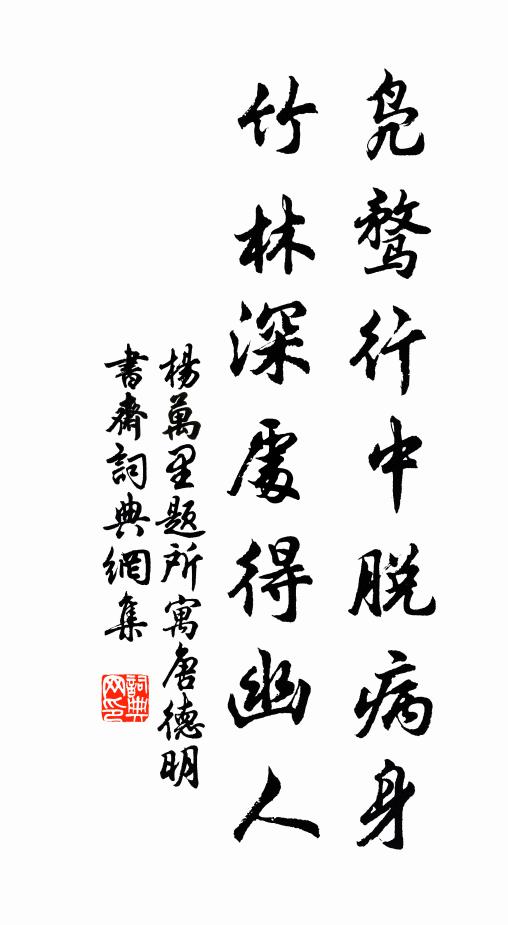 鳧鶩行中脫病身
竹林深處得幽人
楊萬里題所寓唐德明
書齋詞典網集
詞典網印